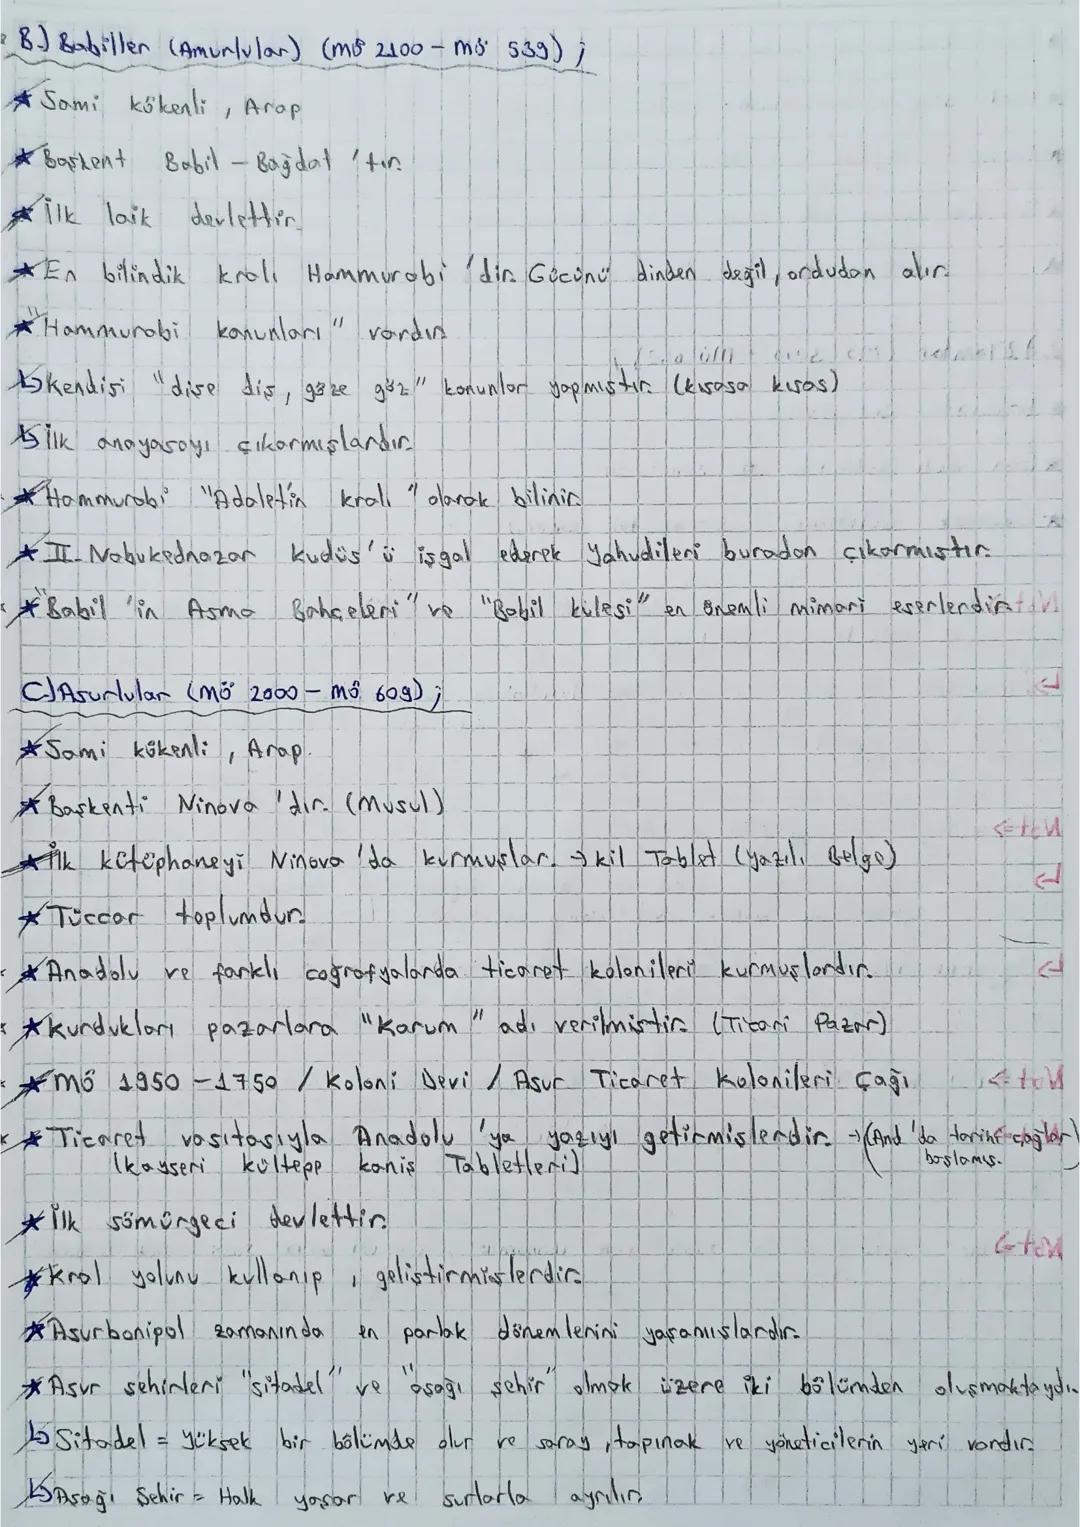 B.) Babiller (Amurlular) (mö 2100 - mö 539) ;
★ Sami kökenli , Arap
★ Başkent Babil - Bağdat 'tır.
★ İlk laik devlettir.
★ En bilindik kralı Hammurabi 'dir. Gücünü dinden değil, ordudan alır.
★ "Hammurabi kanunları" vardır.
↳ Kendisi "dişe diş, göze göz" kanunlar yapmıştır. (kısasa kısas)
↳ İlk anayasayı çıkarmışlardır.
★ Hammurabi "Adaletin kralı" olarak bilinir.
★ II. Nabukednazar Kudüs'ü işgal ederek Yahudileri buradan çıkarmıştır.
★ "Babil 'in Asma Bahçeleri" ve "Babil kulesi" en önemli mimari eserlerdir.
C) Asurlular (mö 2000 - mö 609) ;
★ Sami kökenli , Arap.
★ Başkenti Ninova 'dır. (Musul)
★ İlk kütüphaneyi Ninova 'da kurmuşlar. → kil Tablet (yazılı Belge)
★ Tüccar toplumdur.
★ Anadolu ve farklı coğrafyalarda ticaret kolonileri kurmuşlardır.
★ Kurdukları pazarlara "Karum" adı verilmiştir. (Ticari Pazar)
★ mö 1950 - 1750 / Koloni Devi / Asur Ticaret Kolonileri Çağı
★ Ticaret vasıtasıyla Anadolu 'ya yazıyı getirmişlerdir. → (And 'da tarihi çağlar
(kayseri kültepe kaniş Tabletleri) başlamış.)
★ İlk sömürgeci devlettir.
★ Kral yolunu kullanıp , geliştirmişlerdir.
★ Asurbanipal zamanında en parlak dönemlerini yaşamışlardır.
★ Asur şehirleri "sitadel" ve "aşağı şehir" olmak üzere iki bölümden oluşmaktaydı.
↳ Sitadel = Yüksek bir bölümde olur ve saray , tapınak ve yöneticilerin yeri vardır.
↳ Aşağı Şehir = Halk yaşar ve surlarla ayrılır.